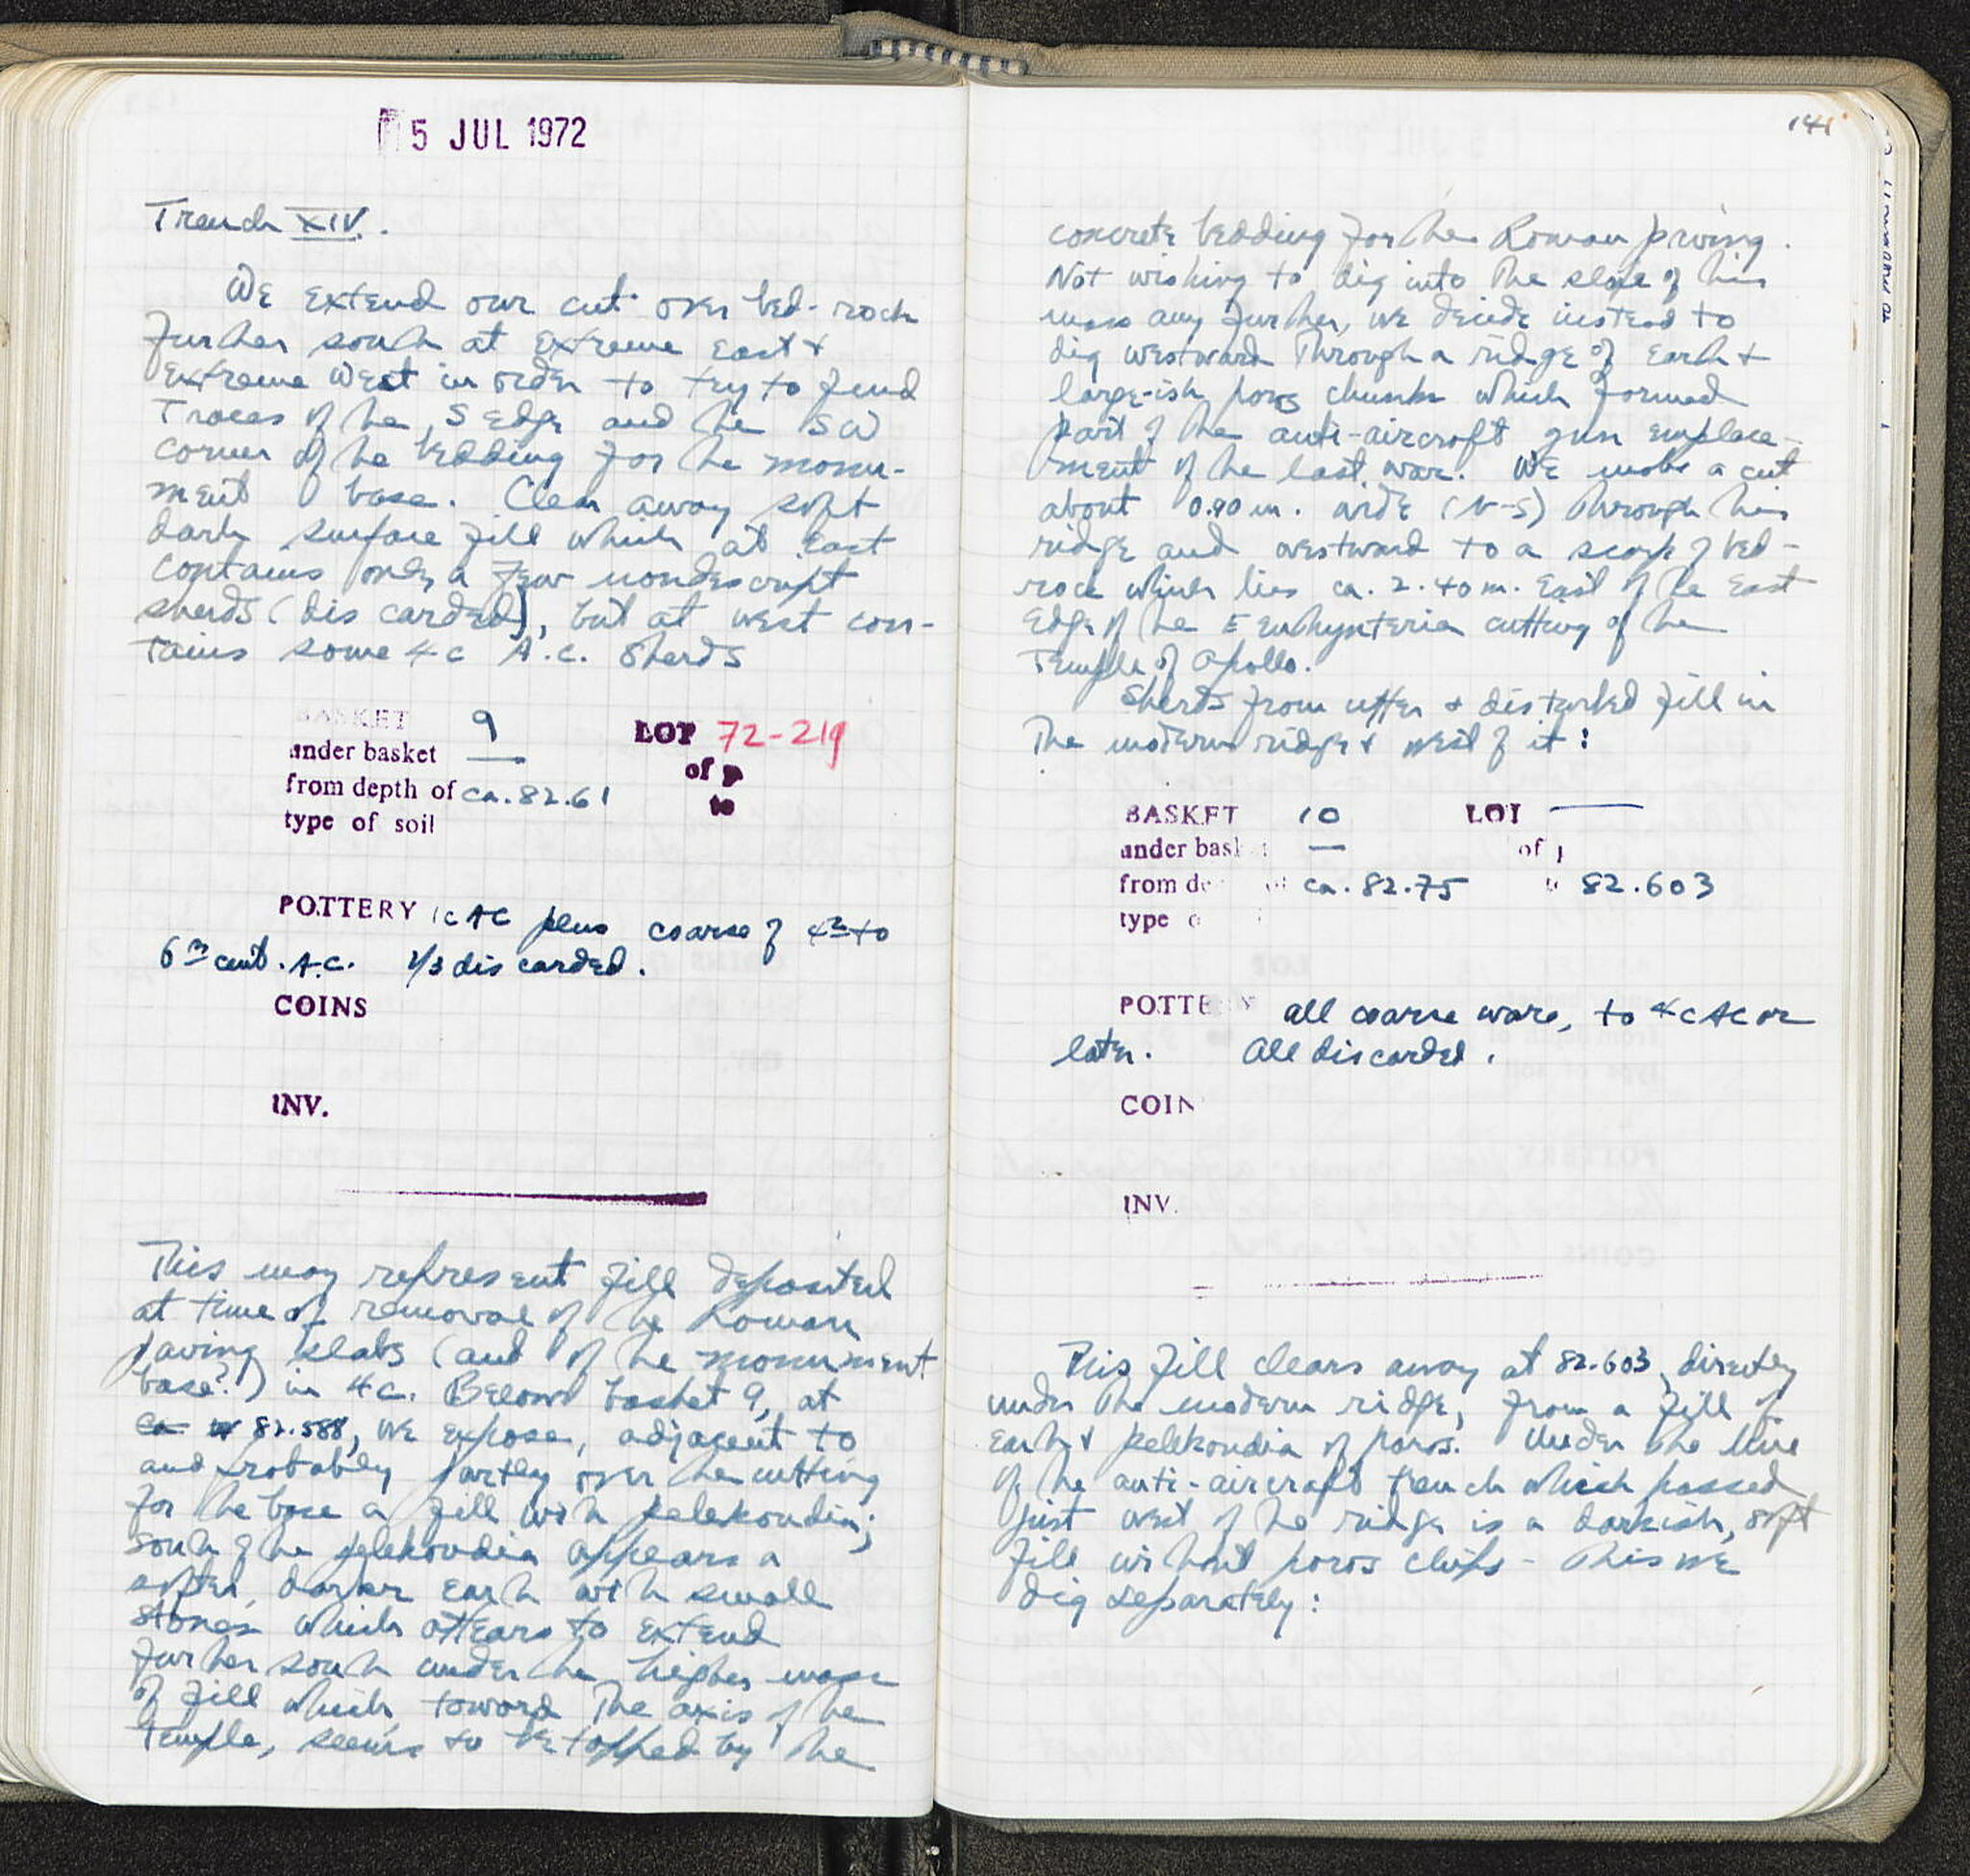 5 JUL 1972
Trench XIV.
We extend our cut over bed-rock
further south at extreme east &
extreme west in order to try to find
traces of the S edge and the SW
corner of the bedding for the monu-
ment base. Clear away soft
dark surface fill which at east
contains only a few nondescript
sherds (discarded), but at west con-
tains some 4c A.C. sherds
BASKET 9 LOT 72-219
under basket — of p
from depth of ca. 82.61 to
type of soil
POTTERY 1c AC plus coarse of 4th to
6th cent. A.C. 2/3 discarded.
COINS
INV.
This may represent fill deposited
at time of removal of the Roman
paving slabs (and of the monument
base?) in 4c. Below basket 9, at
ca 82.588, we expose, adjacent to
and probably partly over the cutting
for the base a fill with pelekoudia;
south of the pelekoudia appears a
softer, darker earth with small
stones which appears to extend
further south under the higher mass
of fill which, toward the axis of the
temple, seems to be topped by the
141
concrete bedding for the Roman paving.
Not wishing to dig into the slope of this
mass any further, we decide instead to
dig westward through a ridge of earth &
large-ish poros chunks which formed
part of the anti-aircraft gun emplace-
ment of the last war. We make a cut
about 0.90 m. wide (N-S) through this
ridge and westward to a scarp of bed-
rock which lies ca. 2.40 m. East of the East
edge of the E euthynteria cutting of the
Temple of Apollo.
Sherds from upper & disturbed fill in
the modern ridge & west of it:
BASKET 10 LOT —
under bask — of p
from de of ca. 82.75 to 82.603
type o
POTTERY all coarse ware, to 4c AC or
later. All discarded.
COIN
INV.
This fill clears away at 82.603, directly
under the modern ridge, from a fill of
earth & pelekoudia of poros. Under the line
of the anti-aircraft trench which passed
just west of the ridge is a darkish, soft
fill without poros chips - this we
dig separately: